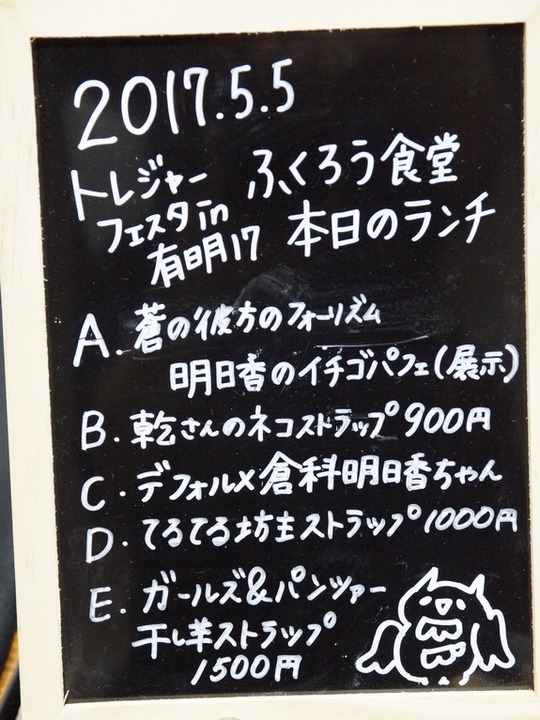 2017.5.5
トレジャー
フェスタin
有明17
ふくろう食堂
本日のランチ
A. 蒼の彼方のフォーリズム
明日香のイチゴパフェ(展示)
B. 乾さんのネコストラップ900円
C. デフォルメ倉科明日香ちゃん
D. てるてる坊主ストラップ1000円
E. ガールズ&パンツァー
干し羊ストラップ
1500円